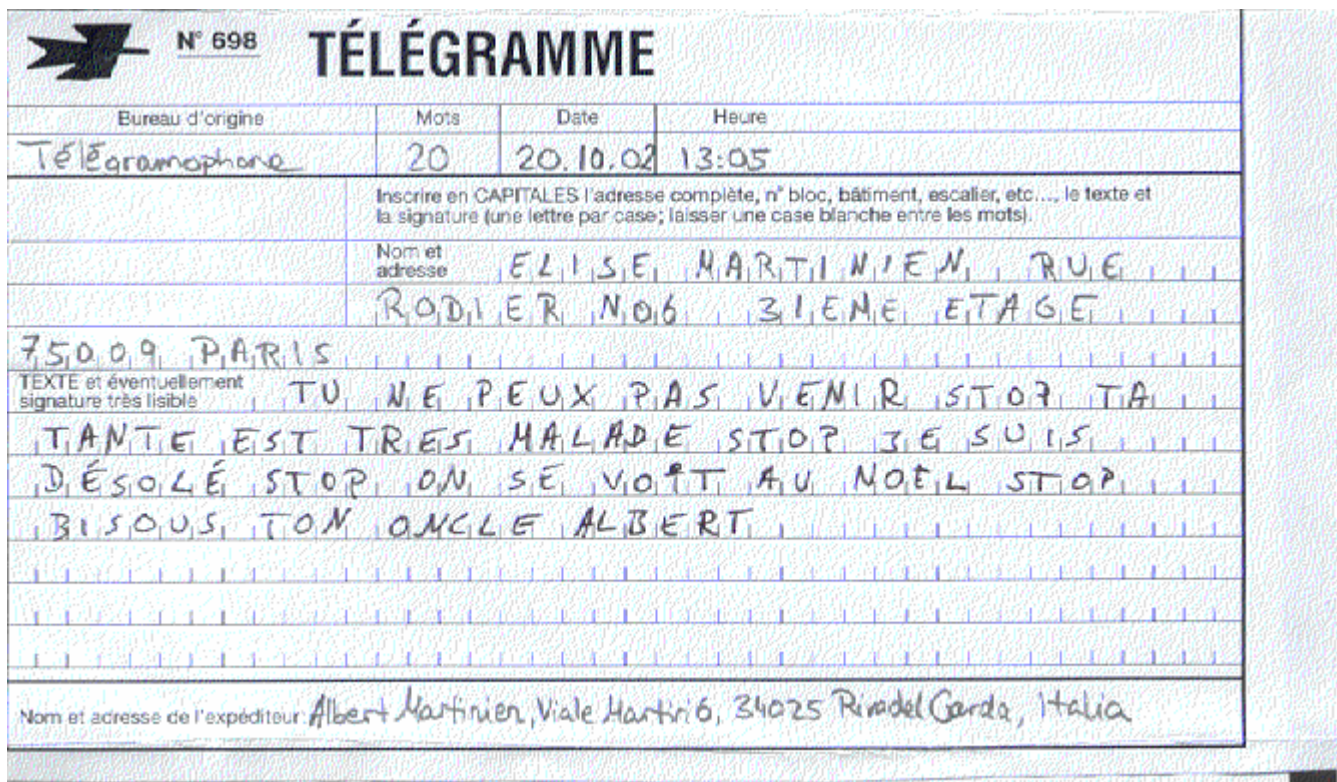 N° 698 TÉLÉGRAMME
Bureau d'origine Mots Date Heure
Télégramophone 20 20.10.02 13:05
Inscrire en CAPITALES l'adresse complète, n° bloc, bâtiment, escalier, etc..., le texte et
la signature (une lettre par case; laisser une case blanche entre les mots).
Nom et
adresse ELISE MARTINIEN, RUE
RODIER NO6 3IEME ETAGE
75009 PARIS
TEXTE et éventuellement
signature très lisible TU NE PEUX PAS VENIR STOP TA
TANTE EST TRES MALADE STOP JE SUIS
DÉSOLÉ STOP ON SE VOIT AU NOËL STOP
BISOUS TON ONCLE ALBERT
Nom et adresse de l'expéditeur: Albert Martinien, Viale Martiri 6, 34025 Riva del Garda, Italia